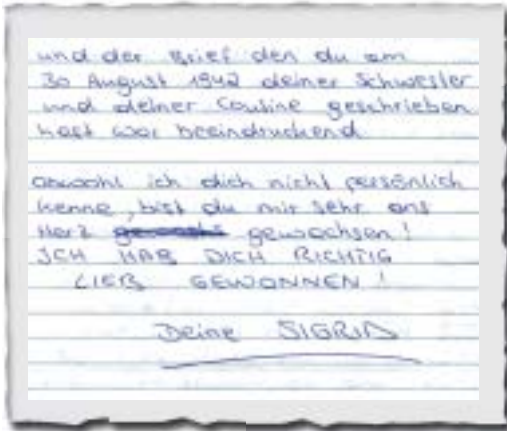 und der Brief den du am
30 August 1942 deiner Schwester
und deiner Cousine geschrieben
hast war beeindruckend
obwohl ich dich nicht persönlich
kenne, bist du mir sehr ans
Herz gewachsen!
ICH HAB DICH RICHTIG
LIEB GEWONNEN!
Deine SIGRID